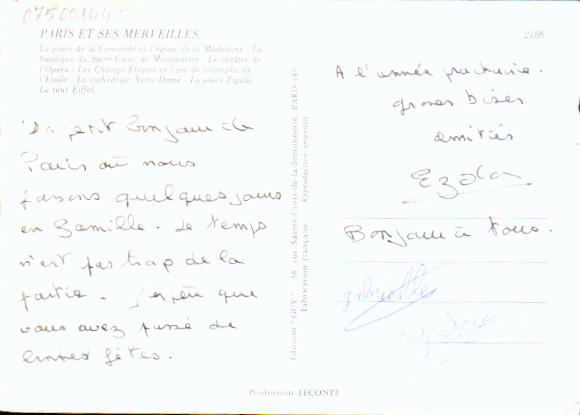 07500144
PARIS ET SES MERVEILLES.
La place de la Concorde et l'église de la Madeleine - La
basilique du Sacré-Cœur de Montmartre - Le théâtre de
l'Opéra - Les Champs-Elysées et l'arc de triomphe de
l'Etoile - La cathédrale Notre-Dame - La place Pigalle
La tour Eiffel.
Un petit bonjour de
Paris où nous
passons quelques jours
en famille. Le temps
n'est pas trop de la
partie. J'espère que
vous avez passé de
bonnes fêtes.
Editions "GUY", 38, rue Sainte-Croix-de-la-Bretonnerie, PARIS (4e)
Fabrication française - Reproduction interdite
2186
A l'année prochaine.
grosses bises
amitiés
Bonjour à tous.
gabrielle
Production LECONTE